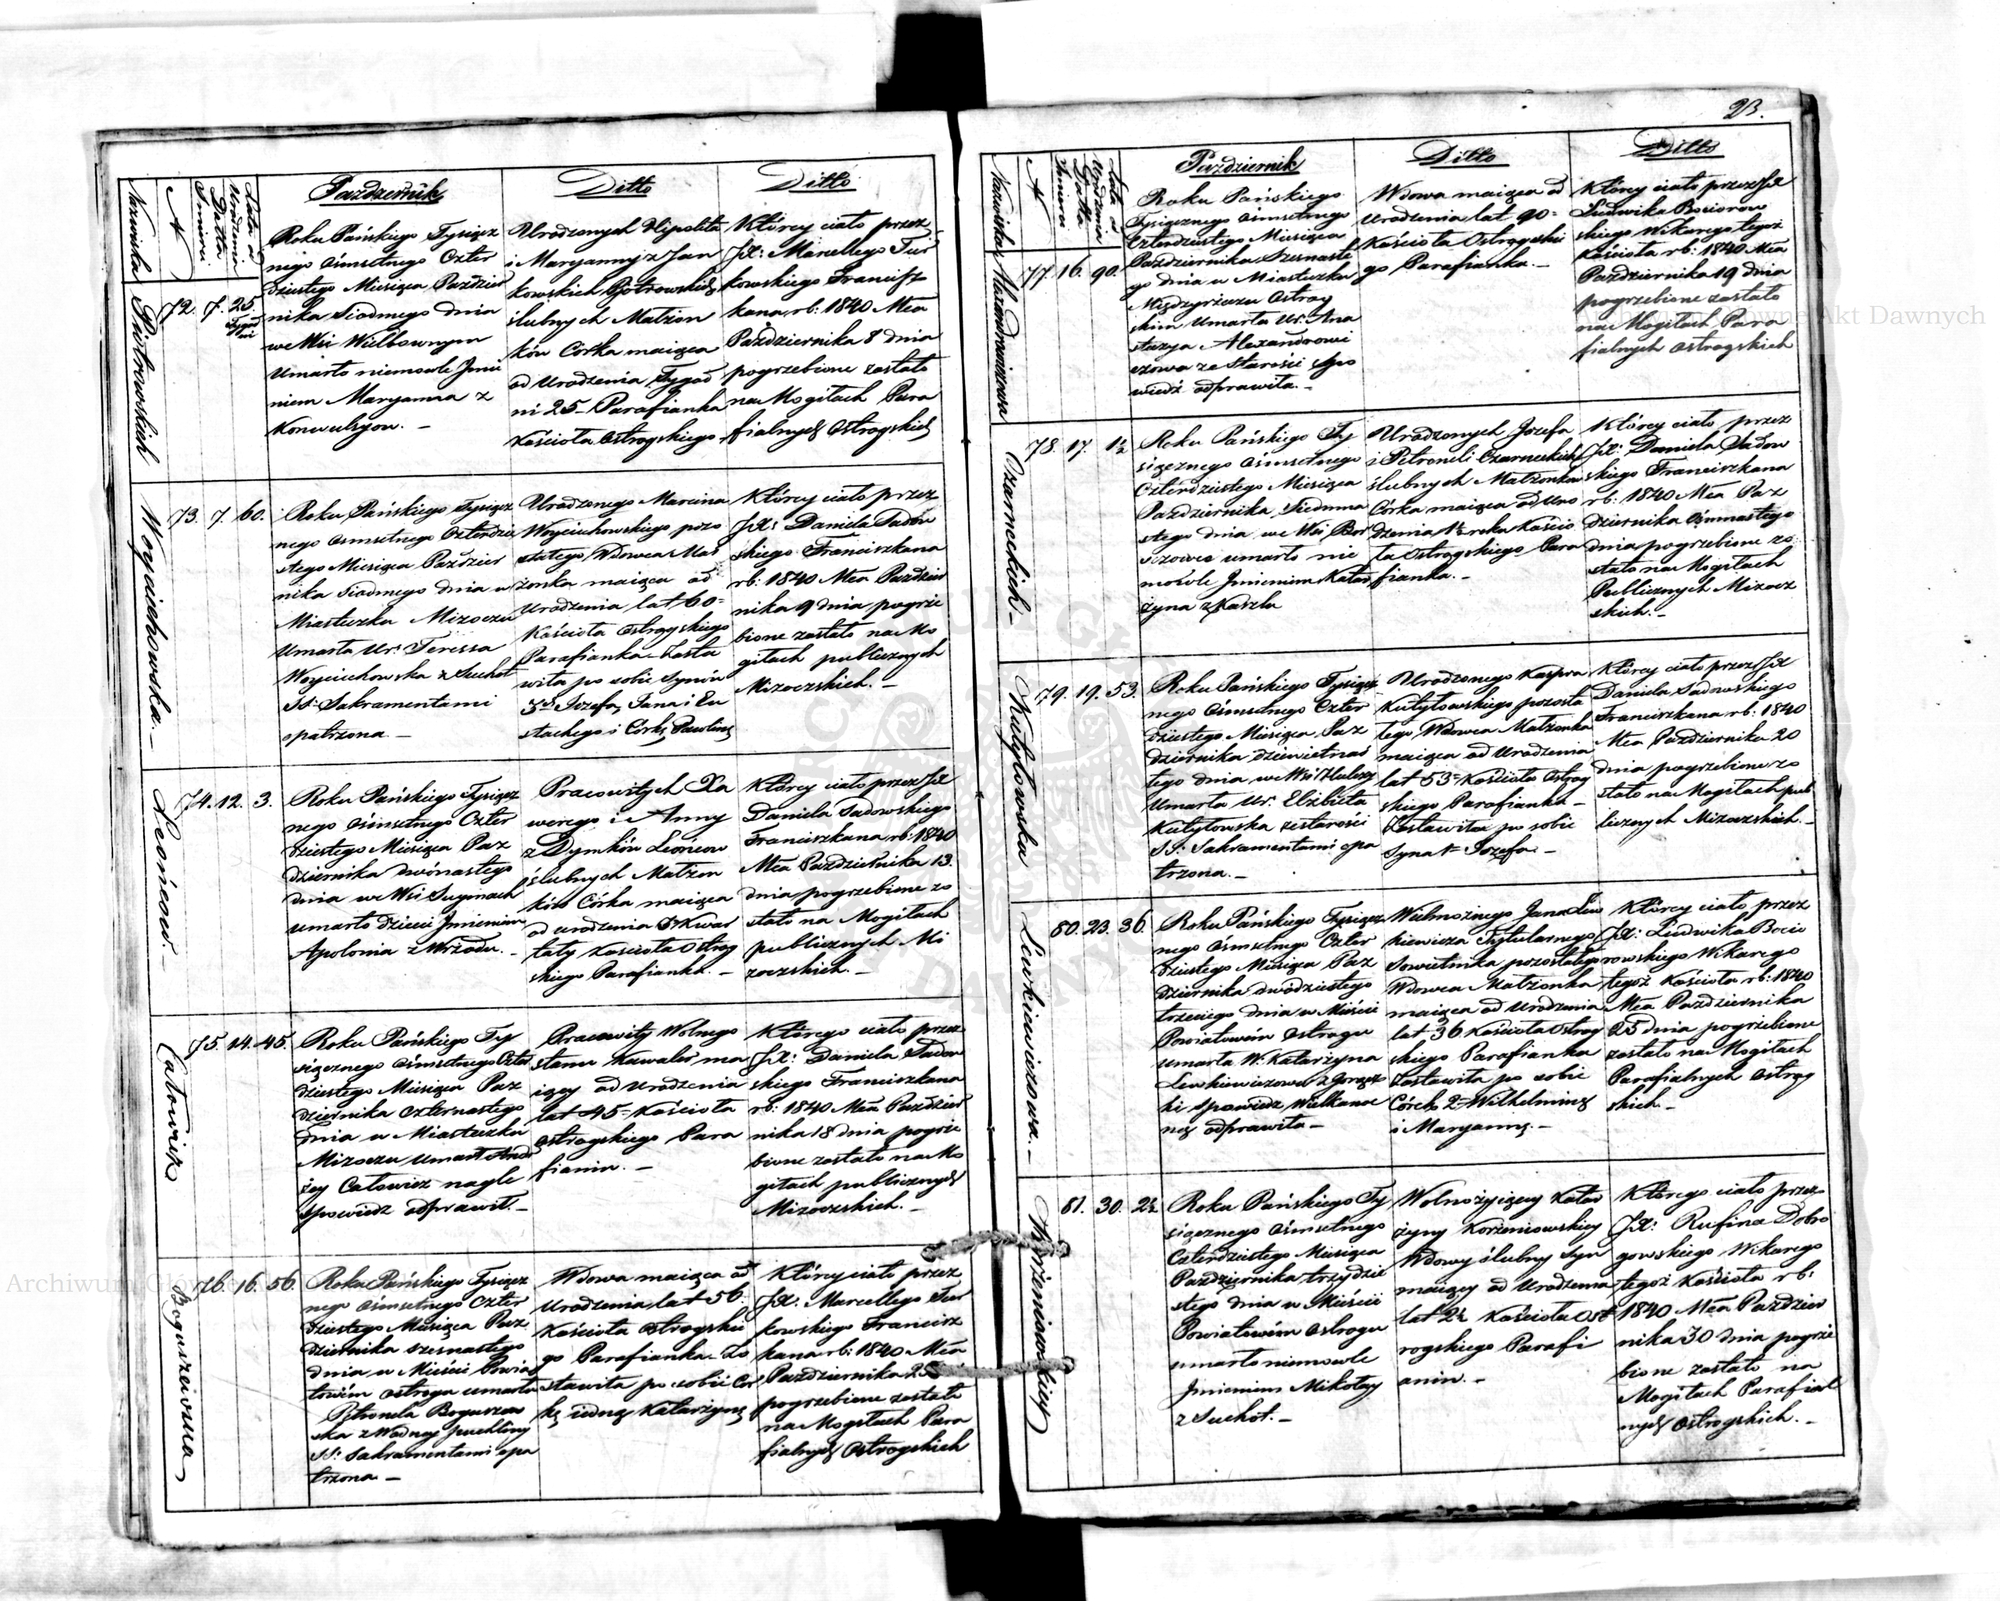 Październik
Ditto
Ditto
Nazwiska
N
Data Śmierci
Lata od Urodzenia
Piotrowskich
72. 7. 25. Tygodni
Roku Pańskiego Tysiącz
nego Ośmsetnego Czter
dziestego Miesiąca Paździer
nika Siodmego dnia
we Wsi Wielbownym
Umarło niemowle Jmie
niem Maryanna z
Konwulsyow. –
Urodzonych Hipolita
i Maryanny z Jan
kowskich Piotrowskich
ślubnych Małżon
ków Córka maiąca
od Urodzenia Tygod
ni 25 – Parafianka
Kościoła Ostrogskiego
Którey ciało przez
JX: Marcellego Tur
kowskiego Francisz
kana rb: 1840 Mca
Października 8 dnia
pogrzebione zostało
na Mogiłach Para
fialnych Ostrogskich
Woyciechowska. –
73. 7. 60.
Roku Pańskiego Tysiącz
nego Osmsetnego Czterdzie
stego Miesiąca Paździer
nika Siodmego dnia w
Miasteczku Mizoczu
Umarła Ur: Teressa
Woyciechowska z Suchot
SS: Sakramentami
opatrzona –
Urodzonego Marcina
Woyciechowskiego pozo
stałego Wdowca Mał
żonka maiąca od
Urodzenia lat 60 =
Kościoła Ostrogskiego
Parafianka – Zosta
wiła po sobie Synów
3ch Jozefa, Jana i Eu
stachego i Córkę Paulinę
Którey ciało przez
JX: Daniela Sadow
skiego Franciszkana
rb: 1840 Mca Paździer
nika 9 dnia pogrze
bione zostało na Mo
giłach publicznych
Mizoczskich. –
Leońcow. –
74. 12. 3.
Roku Pańskiego Tysiącz
nego Ośmsetnego Czter
dziestego Miesiąca Paz
dziernika dwónastego
dnia we Wsi Suymach
umarło dziecie Jmieniem
Apolonia z Wrzodu. –
Pracowitych Xa
werego i Anny
z Dymków Leońcow
ślubnych Małżon
ków Córka maiąca
od urodzenia 3 Kwar
tały Kościoła Ostrog
skiego Parafianka. –
Którey ciało przez JX
Daniela Sadowskiego
Franciszkana rb: 1840
Mca Października 13
dnia pogrzebione zo
stało na Mogiłach
publicznych Mi
zoczskich. –
Całowicz
75. 14. 45.
Roku Pańskiego Ty
siącznego Ośmsetnego Czter
dziestego Miesiąca Paz
dziernika Czternastego
dnia w Miasteczku
Mizoczu umarł Andr
żey Całowicz nagle
spowiedz odprawił. –
Pracowity Wolnego
stanu Kawaler ma
iący od Urodzenia
lat 45 = Kościoła
Ostrogskiego Para
fianin. –
Którego ciało przez
JX: Daniela Sadow
skiego Franciszkana
rb: 1840 Mca Paździer
nika 18 dnia pogrze
bione zostało na Mo
giłach publicznych
Mizoczskich. –
Boguszewska
76. 16. 56.
Roku Pańskiego Tysiącz
nego Ośmsetnego Czter
dziestego Miesiąca Paź
dziernika szesnastego
dnia w Mieście Powia
towém Ostrogu umarła
Petronela Boguszew
ska z Wodney puchliny
SS: Sakramentami opa
trzona –
Wdowa maiąca od
Urodzenia lat 56.
Kościoła Ostrogskie
go Parafianka – Zo
stawiła po sobie Cor
kę iednę Katarzynę
Którey ciało przez
JX: Marcellego Tur
kowskiego Francisz
kana rb: 1840 Mca
Października 25
pogrzebione zostało
na Mogiłach Para
fialnych Ostrogskich
23.
Październik
Ditto
Ditto
Nazwiska
N
Data Śmierci
Lata od Urodzenia
Alexandrowiczowa
77. 16. 90.
Roku Pańskiego
Tysiącznego Ośmsetnego
Czterdziestego Miesiąca
Października Szesnaste
go dnia w Miasteczku
Międzyrzeczu Ostrog
skim Umarła Ur: Ana
stazya Alexandrowi
czowa ze Starości Spo
wiedź odprawiła. –
Wdowa maiąca od
Urodzenia lat 90 =
Kościoła Ostrogskie
go Parafianka. –
Którey ciało przez JX
Ludwika Bociorow
skiego Wikarego tegoż
Kościoła rb: 1840 Mca
Października 19 dnia
pogrzebione zostało
na Mogiłach Para
fialnych Ostrogskich
Czarneckich –
78. 17. 1½
Roku Pańskiego Ty
siącznego Ośmsetnego
Czterdziestego Miesiąca
Października Siedmna
stego dnia we Wsi Bor
szczowce umarło nie
mowle Jmieniem Katar
żyna z Kaszlu
Urodzonych Jozefa
i Petroneli Czarneckich
ślubnych Małżonków
Córka maiąca od Uro
dzenia 1½ roku Koscio
ła Ostrogskiego Para
fianka. –
Którey ciało przez
JX: Daniela Sadow
skiego Franciszkana
rb: 1840 Mca Paz
dziernika Ośmnastego
dnia pogrzebione zo
stało na Mogiłach
Publicznych Mizocz
skich. –
Kułytowska
79. 19. 53.
Roku Pańskiego Tysiącz
nego Ośmsetnego Czter
dziestego Miesiąca Paz
dziernika dziewietnas
tego dnia, we Wsi
Umarła Ur: Elżbieta
Kułytowska ze starości
SS: Sakramentami opa
trzona. –
Urodzonego Kaspra
Kułytowskiego pozosta
łego Wdowca Małżonka
maiąca od Urodzenia
lat 53 = Kościoła Ostrog
skiego Parafianka –
Zostawiła po sobie
Syna 1 Jozefa –
Którey ciało przez JX
Daniela Sadowskiego
Franciszkana rb: 1840
Mca Października 20
dnia pogrzebione zo
stało na Mogiłach pub
licznych Mizoczskich. –
Lewkiewiczowa. –
80. 23. 36.
Roku Pańskiego Tysiącz
nego Ośmsetnego Czter
dziestego Miesiąca Paz
dziernika dwódziestego
trzeciego dnia w Mieście
Powiatowém Ostrogu
umarła W. Katarzyna
Lewkiewiczowa z Gorącz
ki Spowiedz Wielkanoc
ną odprawiła –
Wielmożnego Jana Lew
kiewicza Tytularnego
Sowietnika pozostałego
Wdowca Małżonka
maiąca od Urodzenia
lat 36 Kościoła Ostrog
skiego Parafianka
Zostawiła po sobie
Córek 2 = Wilhelminę
i Maryannę. –
Którey ciało przez
JX: Ludwika Bocio
rowskiego Wikarego
tegoż Kościoła rb: 1840
Mca Października
25 dnia pogrzebione
zostało na Mogiłach
Parafialnych Ostrog
skich –
Korzeniowskiey
81. 30. 2½
Roku Pańskiego Ty
siącznego Ośmsetnego
Czterdziestego Miesiąca
Października trzydzie
stego dnia w Mieście
Powiatowém Ostrogu
umarło niemowle
Jmieniem Mikołay
z Suchot. –
Wolnożyiącey Katar
żyny Korzeniowskiey
Wdowy ślubny Syn
maiący od Urodzenia
lat 2½ Kościoła Ost
rogskiego Parafi
anin. –
Którego ciało przez
JX: Rufina Dobro
gowskiego Wikarego
tegoż Kościoła rb:
1840 Mca Paździer
nika 30 dnia pogrze
bione zostało na
Mogiłach Parafial
nych Ostrogskich. –
Archiwum Główne Akt Dawnych